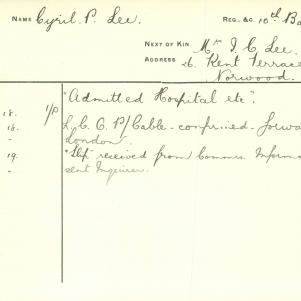 NAME Cyril P. Lee. REG. &c. 10th Ba
NEXT OF KIN Mr J. C. Lee.
ADDRESS 26. Kent Terrace
Norwood.
18. 1/P "Admitted Hospital etc".
18. Cable - confirmed - forwa
- London.
19. "Slip" received from Commrs. Informa
- sent Inquirer.